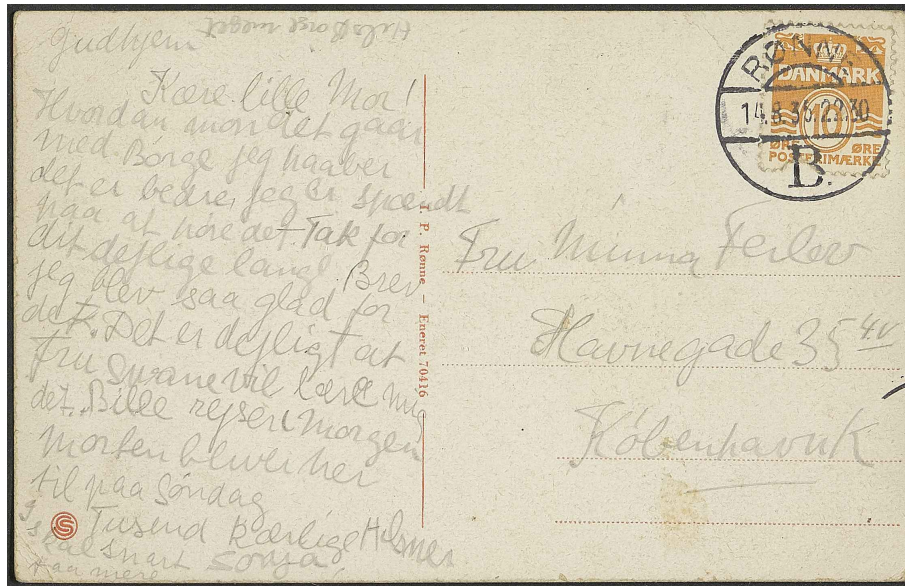 Hils Børge meget
Gudhjem
Kære lille Mor!
Hvordan mon det gaar
med Børge jeg haaber
det er bedre, jeg er spændt
paa at høre det Tak for
dit dejlige lange Brev
jeg blev saa glad for
det. Det er dejligt at
Fru Svane vil lære mig
det. Bille rejser i Morgen
Morten bliver her
til paa Søndag
Tusend kærlige Hilsner
Sonja
skal snart
faa mere
I. P. Rønne – Eneret 70416
RØNNE
14.8.35.22.30
B.
DANMARK
10
ØRE ØRE
POSTFRIMÆRKE
Fru Minna Feilov
Havnegade 35 4.V
København K